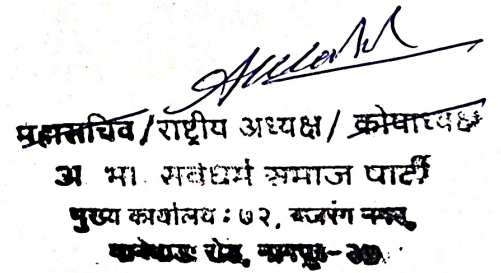 महासचिव / राष्ट्रीय अध्यक्ष / कोषाध्यक्ष
अ भा. सर्वधर्म समाज पार्टी
मुख्य कार्यालय : ७२, बजरंग नगर,
रोड, नागपुर-